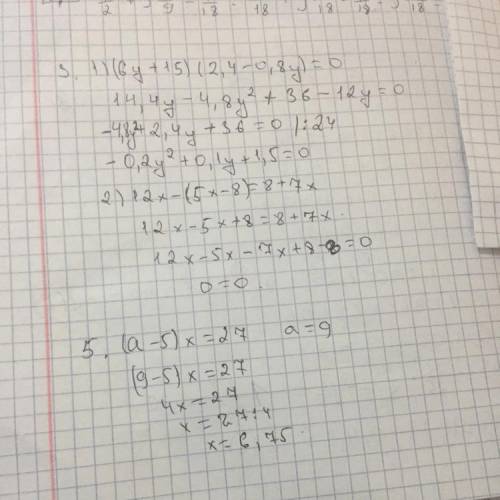 3. 1) (6y+15)(2,4-0,8y)=0
14,4y-4,8y²+36-12y=0
-4,8y²+2,4y+36=0 /:24
-0,2y²+0,1y+1,5=0
2) 12x-(5x-8)=8+7x
12x-5x+8=8+7x.
12x-5x-7x+8-8=0
0=0.
5. (a-5)x=27 a=9
(9-5)x=27
4x=27
x=27:4
x=6,75.